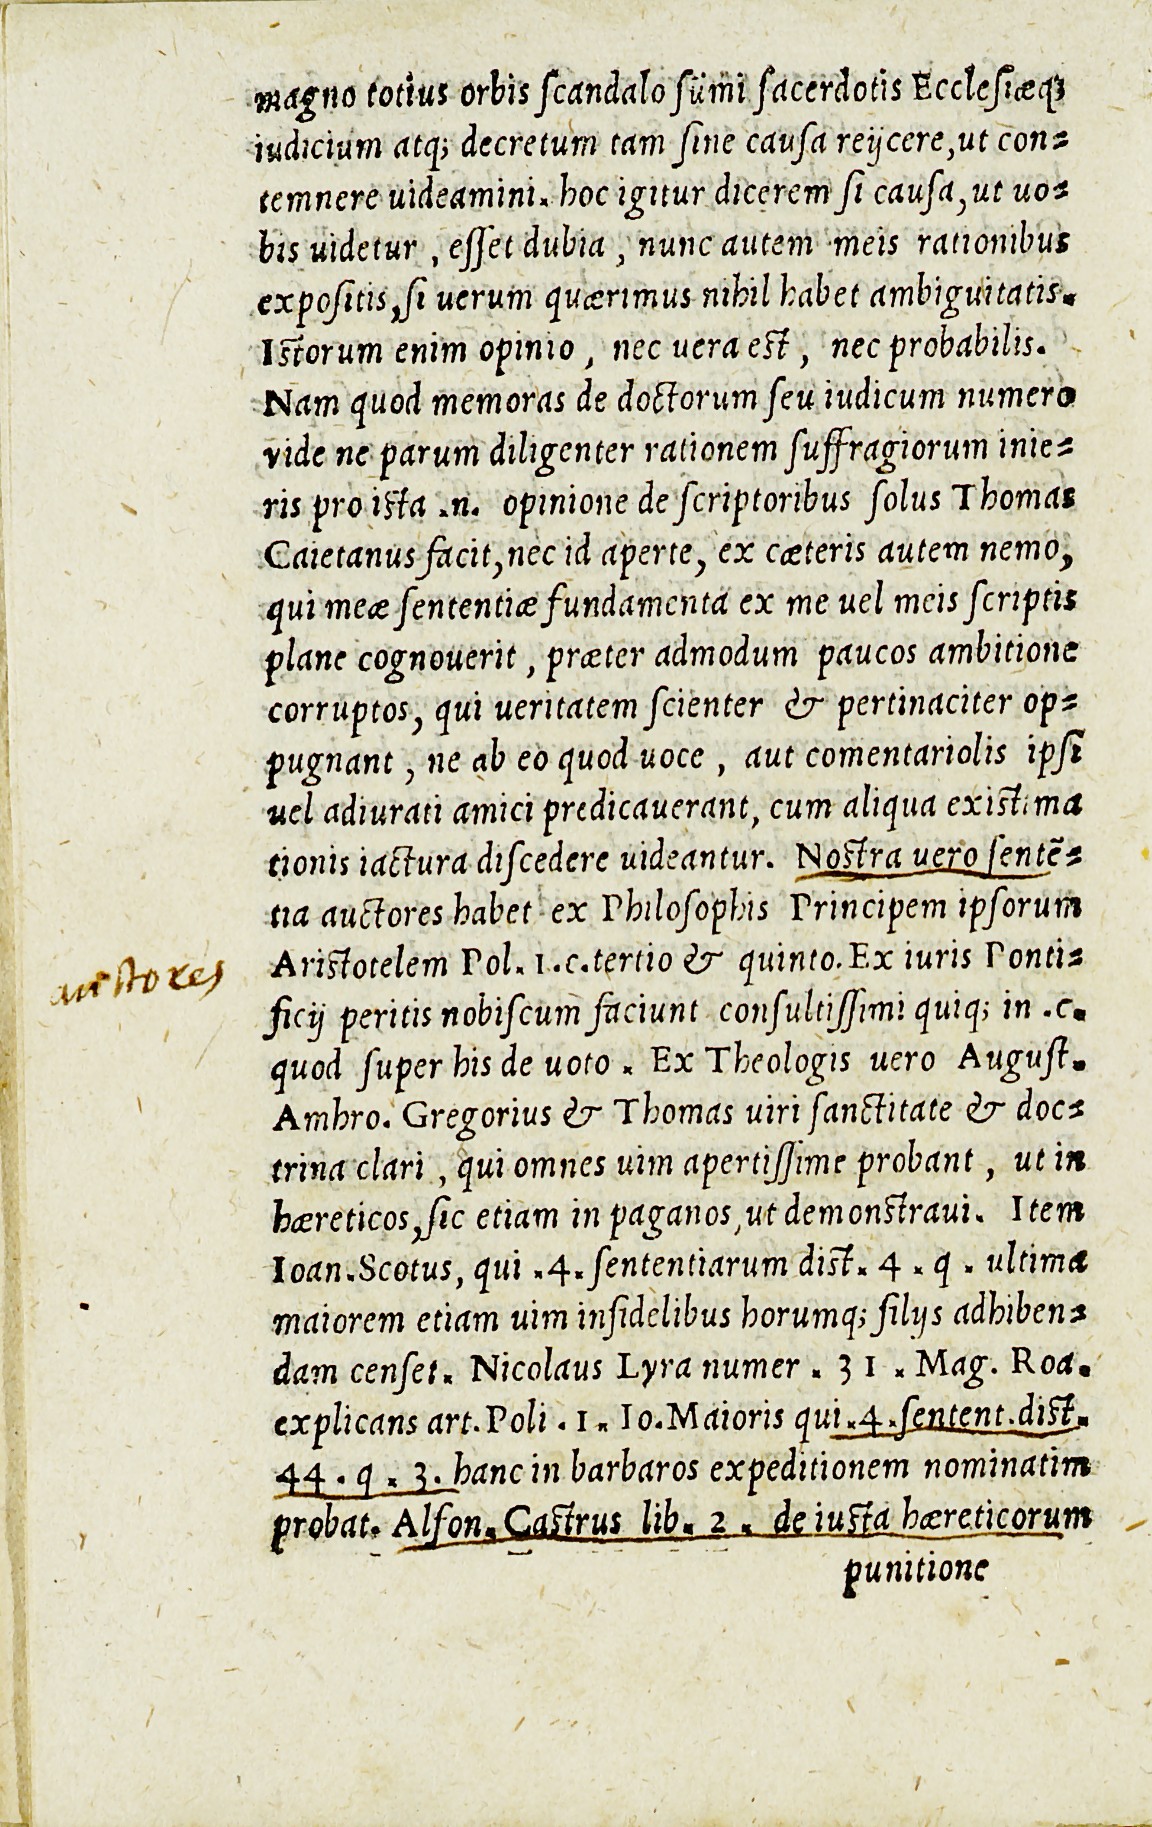 magno totius orbis scandalo sūmi sacerdotis Ecclesiæq;
iudicium atq; decretum tam sine causa reijcere, ut con=
temnere uideamini. hoc igitur dicerem si causa, ut uo=
bis uidetur , esset dubia , nunc autem meis rationibus
expositis, si uerum quærimus nihil habet ambiguitatis.
Istorum enim opinio , nec uera est , nec probabilis.
Nam quod memoras de doctorum seu iudicum numero
vide ne parum diligenter rationem suffragiorum inie=
ris pro ista .n. opinione de scriptoribus solus Thomas
Caietanus facit, nec id aperte, ex cæteris autem nemo,
qui meæ sententiæ fundamenta ex me uel meis scriptis
plane cognouerit , præter admodum paucos ambitione
corruptos, qui ueritatem scienter & pertinaciter op=
pugnant , ne ab eo quod uoce , aut comentariolis ipsi
uel adiurati amici predicauerant, cum aliqua existima
tionis iactura discedere uideantur. Nostra uero sentē=
tia auctores habet ex Philosophis Principem ipsorum
auctores
Aristotelem Pol. 1.c.tertio & quinto. Ex iuris Ponti=
ficij peritis nobiscum faciunt consultissimi quiq; in .c.
quod super his de uoto . Ex Theologis uero August.
Ambro. Gregorius & Thomas uiri sanctitate & doc=
trina clari , qui omnes uim apertissime probant , ut in
hæreticos, sic etiam in paganos, ut demonstraui. Item
Ioan.Scotus, qui .4. sententiarum dist. 4 . q . ultima
maiorem etiam uim infidelibus horumq; filijs adhiben=
dam censet. Nicolaus Lyra numer . 31 . Mag. Roa.
explicans art. Poli . 1. Io. Maioris qui .4. sentent. dist.
44 . q . 3. hanc in barbaros expeditionem nominatim
probat. Alfon. Castrus lib. 2 . de iusta hæreticorum
punitione